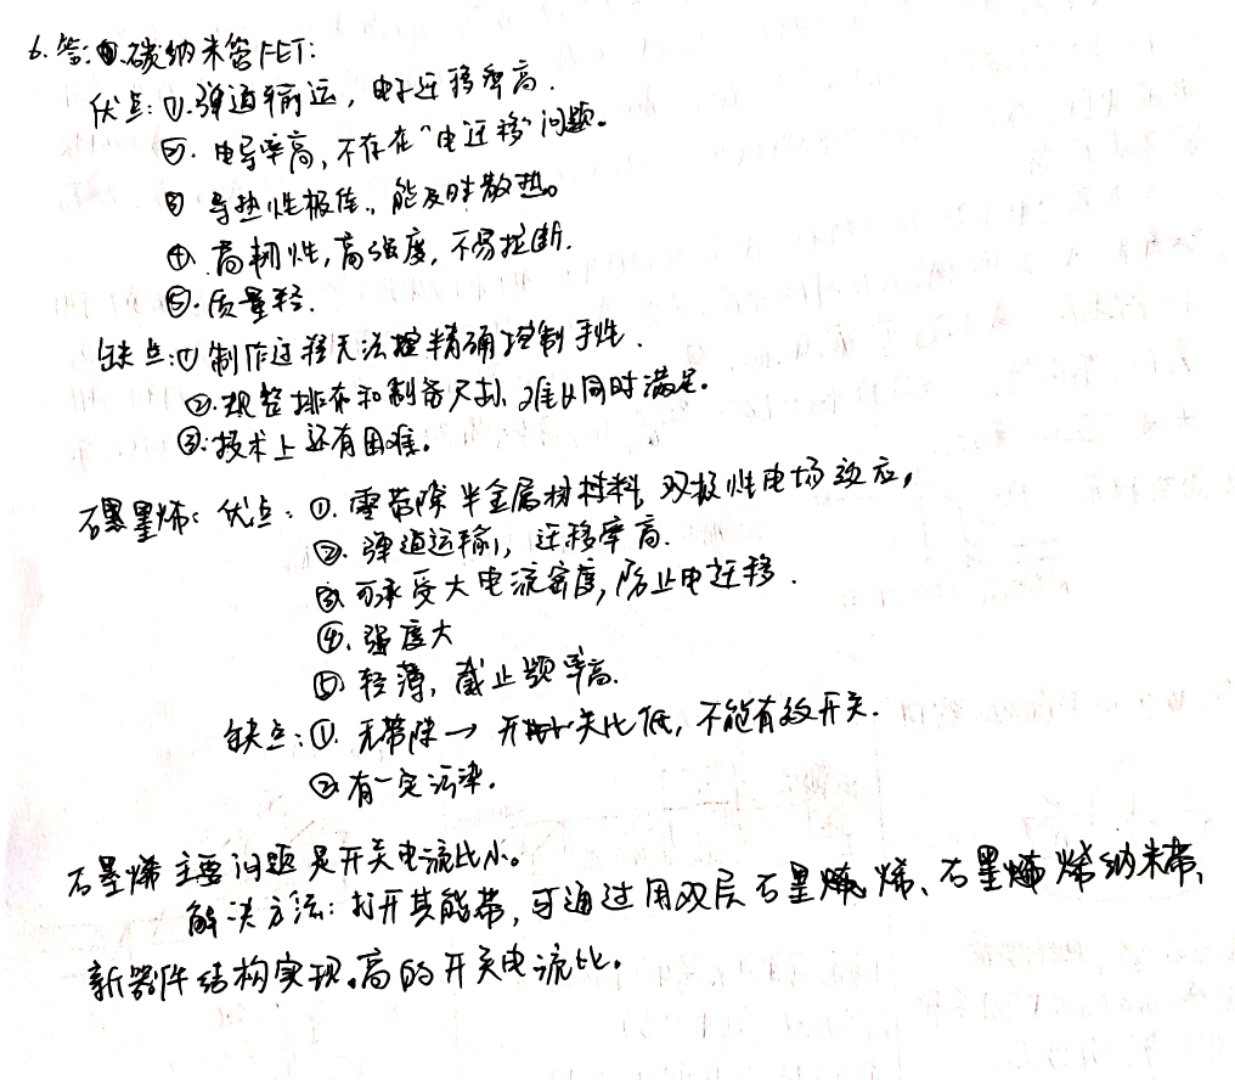 6. 答: 碳纳米管FET:
优点: ①. 弹道输运, 电子迁移率高.
②. 电导率高, 不存在“电迁移”问题。
③ 导热性极佳, 能及时散热。
④. 高韧性, 高强度, 不易拉断.
⑤. 质量轻.
缺点: ① 制作过程无法精确控制手性.
②. 规整排布和制备尺寸, 难以同时满足.
③. 技术上还有困难。
石墨烯: 优点: ①. 零带隙半金属材料, 双极性电场效应,
②. 弹道运输, 迁移率高.
③ 可承受大电流密度, 防止电迁移.
④. 强度大
⑤ 轻薄, 截止频率高.
缺点: ①. 无带隙 → 开关比低, 不能有效开关.
② 有一定污染.
石墨烯主要问题是开关电流比小。
解决方法: 打开其能带, 可通过用双层石墨烯、石墨烯纳米带、
新器件结构实现高的开关电流比.